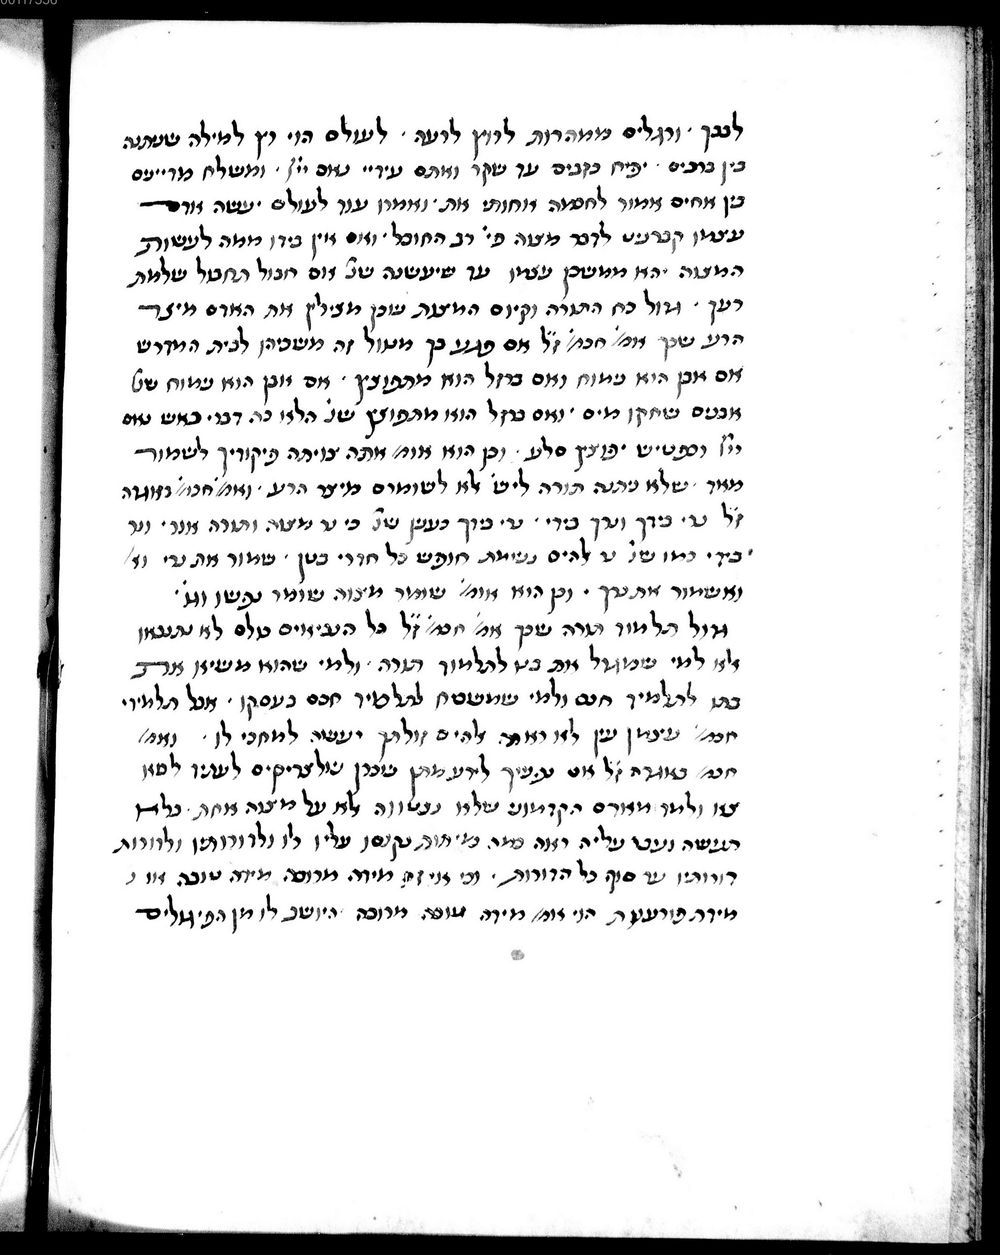 לבבך · ורגלים ממהרות לרוץ לרעה · לעולם הוי רץ למילה שניתנה
בין ברכים · יפיח כזבים עד שקר ואתם עידיי נאם יי' · ומשלח מדיינים
בין אחים אמור לחכמה אחותי את · ואמרו עוד לעולם יעשה אדם
עצמו קברניט לדבר מצוה פי' רב החובל · ואם אין בידו ממה לעשות
המצוה יהא ממשכן עצמו עד שיעשנה שנ' אם חבול תחבול שלמת
רעך · גדול כח התורה וקיום המצות שהן מצילין את האדם מיצר
הרע שכך אמ' חכמ' ז"ל אם פגע בך מנוול זה משכיהו לבית המדרש
אם אבן הוא נימוח ואם ברזל הוא מתפוצץ · אם אבן הוא נימוח שנ'
אבנים שחקו מים · ואם ברזל הוא מתפוצץ שנ' הלא כה דברי כאש נאם
יי' וכפטיש יפוצץ סלע · וכן הוא אומ' אתה צויתה פיקודיך לשמור
מאד · שלא ניתנה תורה ליש' אלא לשומרם מיצר הרע · ואמ' חכמ' באגדה
ז"ל נרי בידך ונרך בידי · נרי בידך כענין שנ' כי נר מצוה ותורה אור · ונר
בידי כמו שנ' נר אלהים נשמת חופש כל חדרי בטן · שמור את נרי וא'
ואשמור את נרך · וכן הוא אומ' שומר מצוה שומר נפשו וגו'
גדול תלמוד תורה שכך אמ' חכמ' ז"ל כל הנביאים כולם לא נתנבאו
אלא למי שמגדל את בניו לתלמוד תורה · ולמי שהוא משיא את
בתו לתלמיד חכם ולמי שמשתתף לתלמיד חכם בעסקו · אבל תלמידי
חכמ' עצמן עין לא ראתה אלהים זולתך יעשה למחכי לו · ואמ'
חכמ' באגדה ז"ל אם נפשך לידע מתן שכרן שלצדיקים לעתיד לבא
צא ולמד מאדם הקדמוני שלא נצטווה אלא על מצוה אחת · בלא
תעשה ועבר עליה ראה כמה מיתות נקנסו עליו לו ולדורותיו ולדורות
דורותיו עד סוף כל הדורות · וכי אי זה מידה מרובה מידה טובה או
מידת פורענות הוי אומ' מידה טובה מרובה היושב לו מן הפיגולים